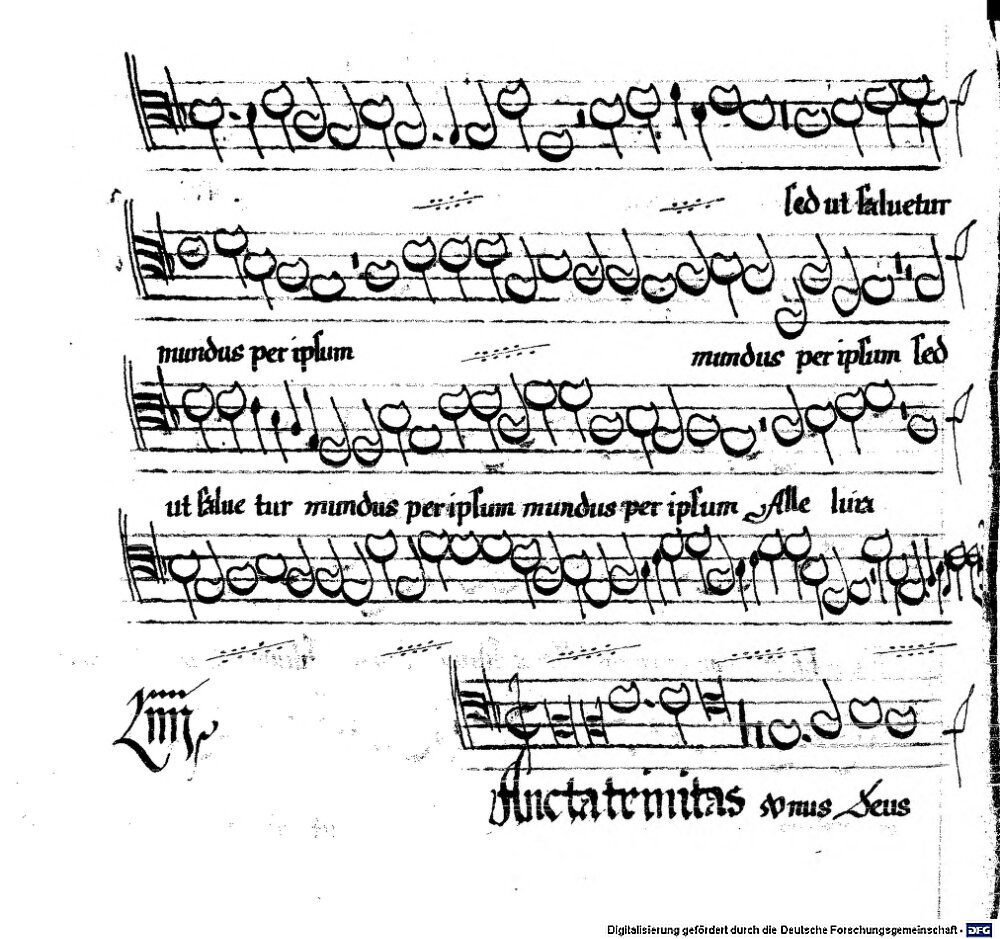 sed ut saluetur
mundus per ipsum mundus per ipsum sed
ut salue tur mundus per ipsum mundus per ipsum Alle luia
Liiii
Sancta trinitas vnus Deus
Digitalisierung gefördert durch die Deutsche Forschungsgemeinschaft - DFG